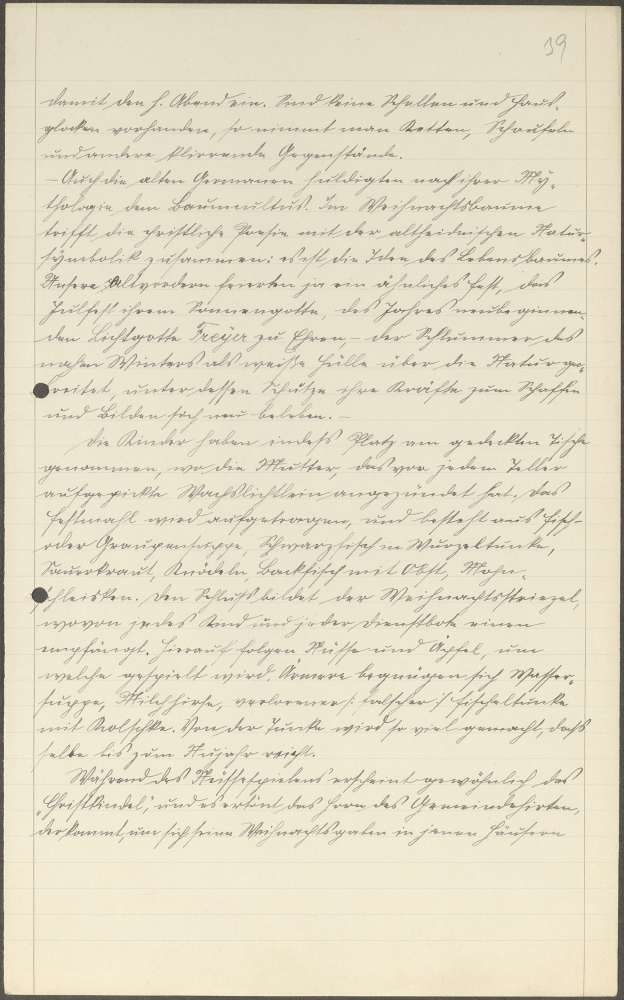 39
damit den h. Abend ein. Sind keine Schellen und Haus-
glocken vorhanden, so nimmt man Ketten, Schaufeln
und andere klirrende Gegenstände.
- Auch die alten Germanen huldigten nach ihrer My-
thologie dem Baumcultus. Im Weihnachtsbaume
trifft die christliche Poesie mit der altheidnischen Natur-
symbolik zusammen: es ist die Idee des Lebensbaumes.
Unsere Altvordern feierten ja ein ähnliches Fest, das
Julfest ihrem Sonnengotte, des Jahres neubeginnen-
den Lichtgotte Freyer zu Ehren, - der Schlummer des
nahen Winters als weiße Hülle über die Natur ge-
breitet, unter dessen Schutze ihre Kräfte zum Schaffen
und Bilden sich neu beleben. -
Die Kinder haben indeß Platz am gedeckten Tische
genommen, wo die Mutter, das vor jedem Teller
aufgepickte Wachslichtlein angezündet hat. Das
Festmahl wird aufgetragen, und besteht aus Fisch-
oder Graupensuppe, Schwarzfisch in Wurzeltunke,
Sauerkraut, Knödeln, Backfisch mit Obst, Mohn-
schleisken. Den Schluß bildet der Weihnachtsstriezel,
wovon jedes Kind und jeder Dienstbote einen
empfängt. Hierauf folgen Nüsse und Äpfel, um
welche gespielt wird. Ärmere begnügen sich Wasser-
suppe, Milchhirse, verlorener /: falscher :/ Fischeltunke
mit Kolschke. Von der Tunke wird so viel gemacht, daß
selbe bis zum Neujahr reicht.
Während des Nüssespielens erscheint gewöhnlich das
"Christkindel", und es ertönt das Horn des Gemeindehirten,
der kommt, um sich seine Weihnachtsgaben in jenen Häusern